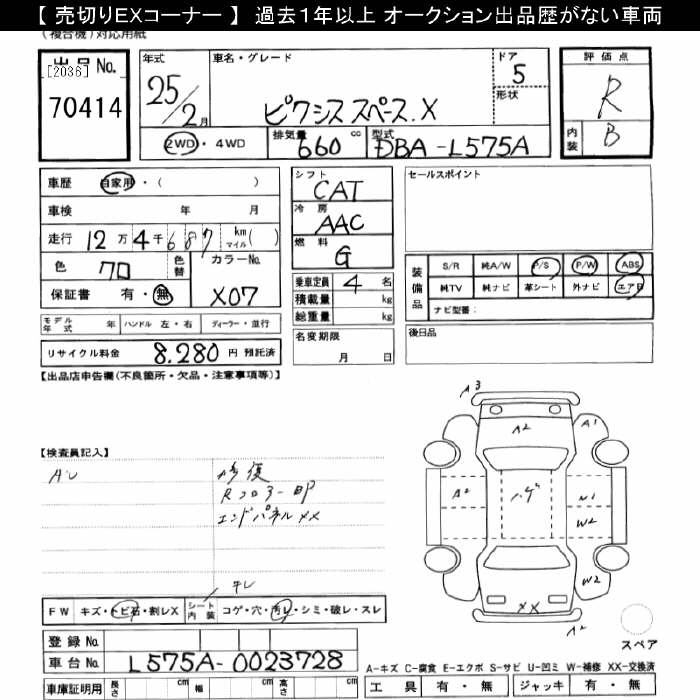 【 売切りEXコーナー 】 過去1年以上 オークション出品歴がない車両
(複合機)対応用紙
出品No. [2036] 70414
年式 25/2月
車名・グレード ピクシス スペース.X
ドア 5
形状
評価点 R
内装 B
2WD・4WD 排気量 660 cc 型式 DBA-L575A
車歴 自家用・( )
車検 年 月
走行 12万4千687 km マイル( )
色 クロ 色替 カラーNo. X07
保証書 有・無
モデル年式 年 ハンドル 左・右 ディーラー・並行
リサイクル料金 8.280 円 預託済
シフト CAT
冷房 AAC
燃料 G
乗車定員 4 名
積載量 kg
総重量 kg
名変期限 月 日
セールスポイント
装備品 S/R 純A/W P/S P/W ABS
純TV 純ナビ 革シート 外ナビ エアB
ナビ型番:
後日品
【出品店申告欄(不良箇所・欠品・注意事項等)】
【検査員記入】
修復
Rコロナー凹
エンドパネルXX
A3
A2
A1
A2
ハゲ
W1
W2
W2
XX
A2
スペア
FW キズ・トビ石・割レX シート内装 コゲ・穴・汚レ・シミ・破レ・スレ
登録No.
車台No. L575A-0023728
車庫証明用 長さ cm 幅 cm 高さ cm
A-キズ C-腐食 E-エクボ S-サビ U-凹ミ W-補修 XX-交換済
工具 有・無 ジャッキ 有・無